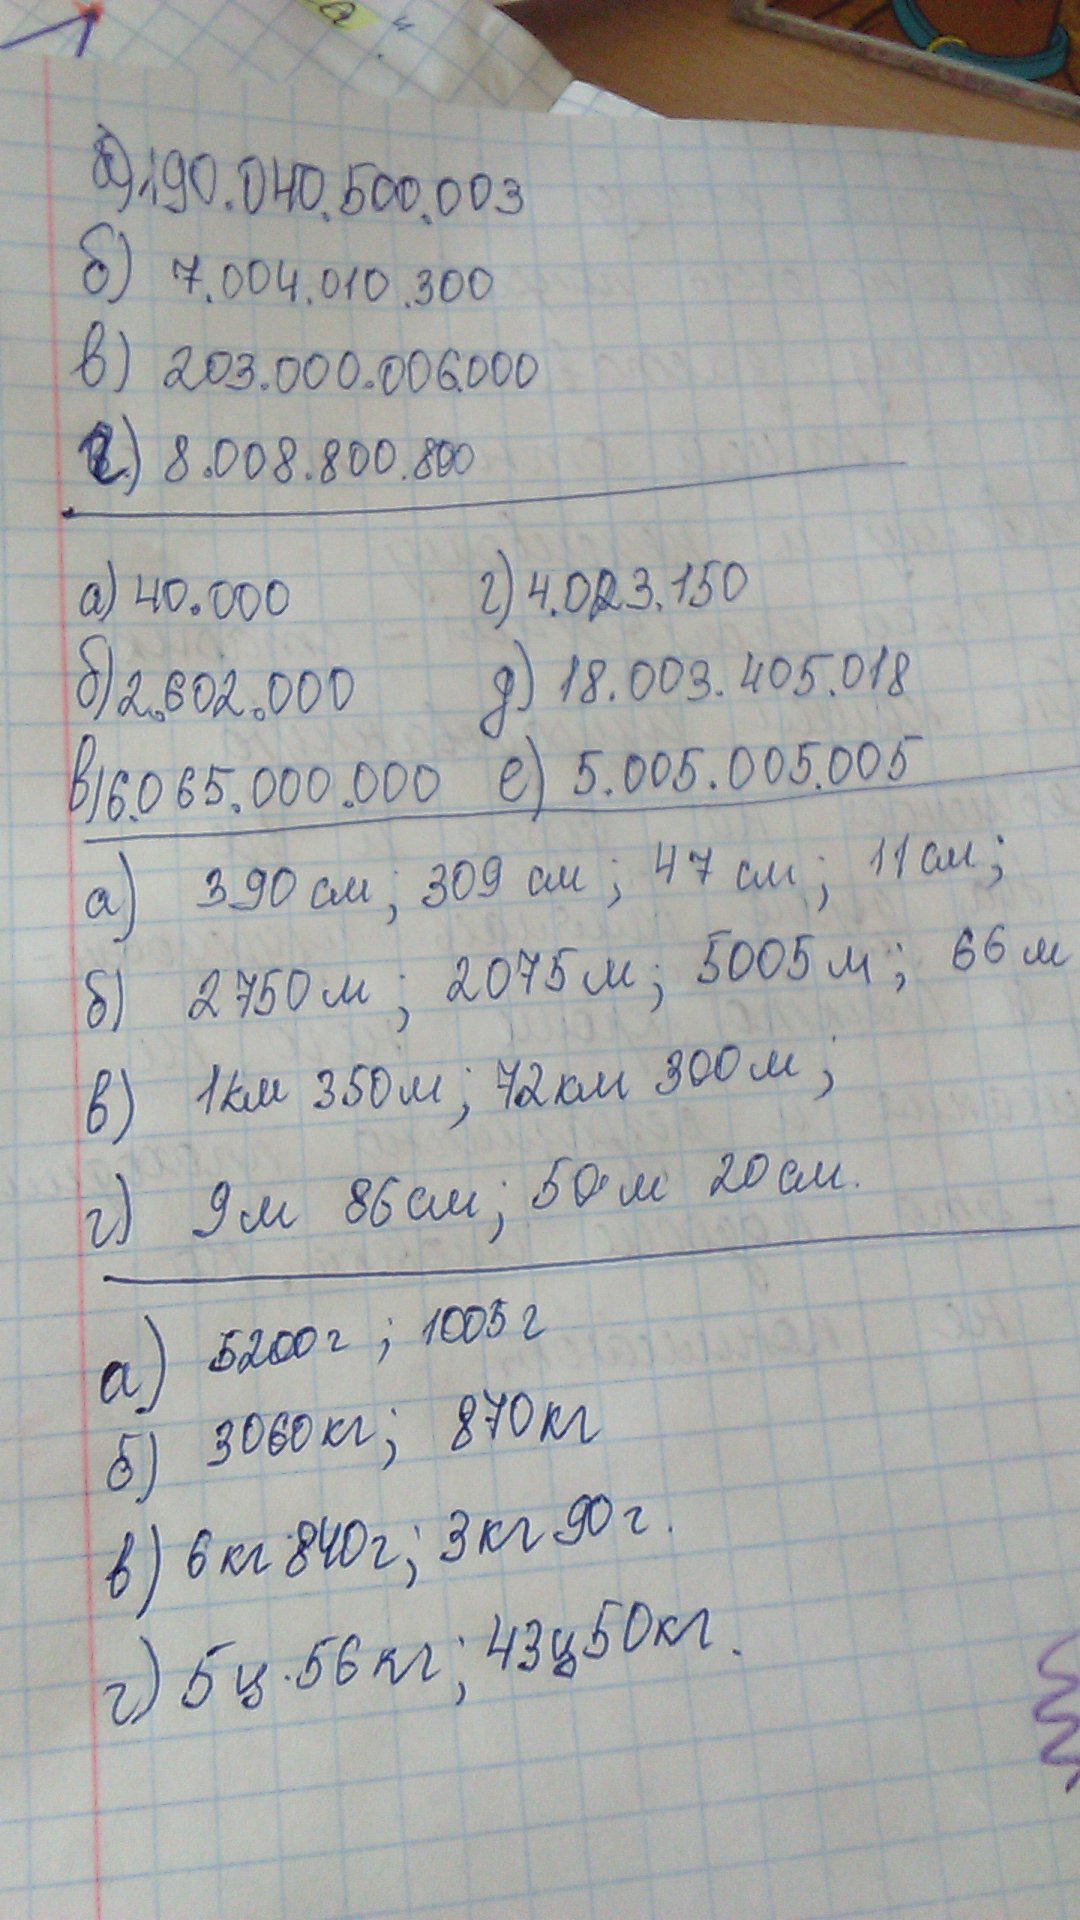 а) 190.040.500.003
б) 7.004.010.300
в) 203.000.006.000
г) 8.008.800.800
а) 40.000 г) 4.023.150
б) 2.602.000 д) 18.003.405.018
в) 6.065.000.000 е) 5.005.005.005
а) 390 см; 309 см; 47 см; 11 см;
б) 2750 м; 2075 м; 5005 м; 66 м
в) 1 км 350 м; 72 км 300 м;
г) 9 м 86 см; 50 м 20 см.
а) 5200 г; 1005 г
б) 3060 кг; 870 кг
в) 6 кг 840 г; 3 кг 90 г.
г) 5 ц 56 кг; 43 ц 50 кг.